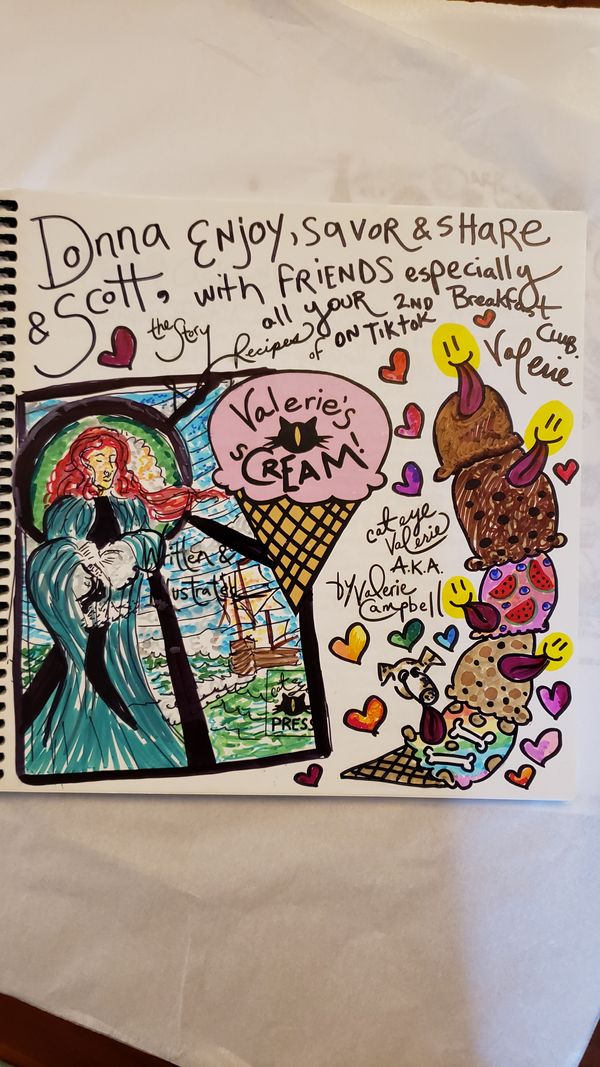 Donna ENJOY, SAVOR & SHARE
& Scott, with FRIENDS especially
all YOUR 2ND Breakfast Club.
ON TIKTOK
Valerie
the Story
Recipes of
Valerie's
sCREAM!
cat eye
Valerie
A.K.A.
by Valerie
Campbell
Written &
Illustrated
cat eye
PRESS